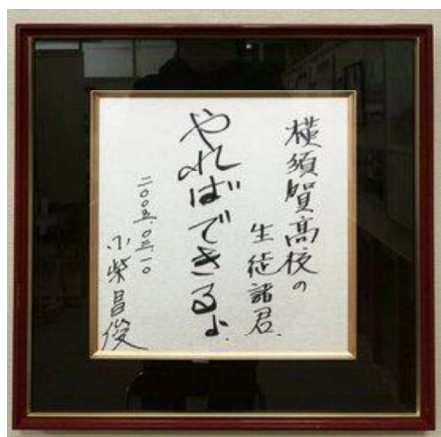 横須賀高校の
生徒諸君、
やればできるよ。
二〇〇五.〇三.一〇
小柴昌俊